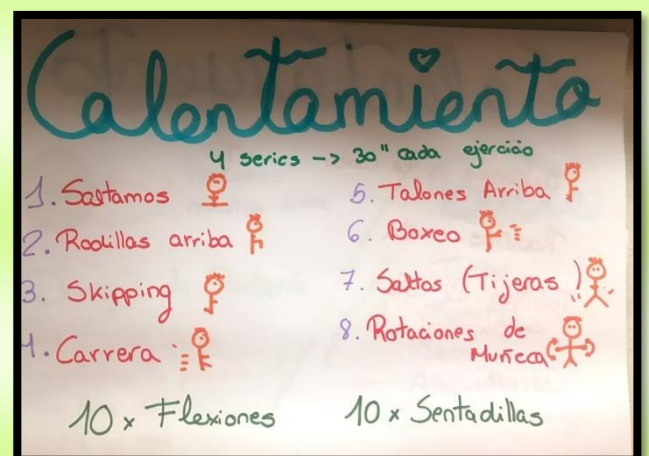 Calentamiento
4 series -> 30" cada ejercicio
1. Saltamos
2. Rodillas arriba
3. Skipping
4. Carrera
5. Talones Arriba
6. Boxeo
7. Saltos (Tijeras)
8. Rotaciones de
Muñeca
10 x Flexiones
10 x Sentadillas